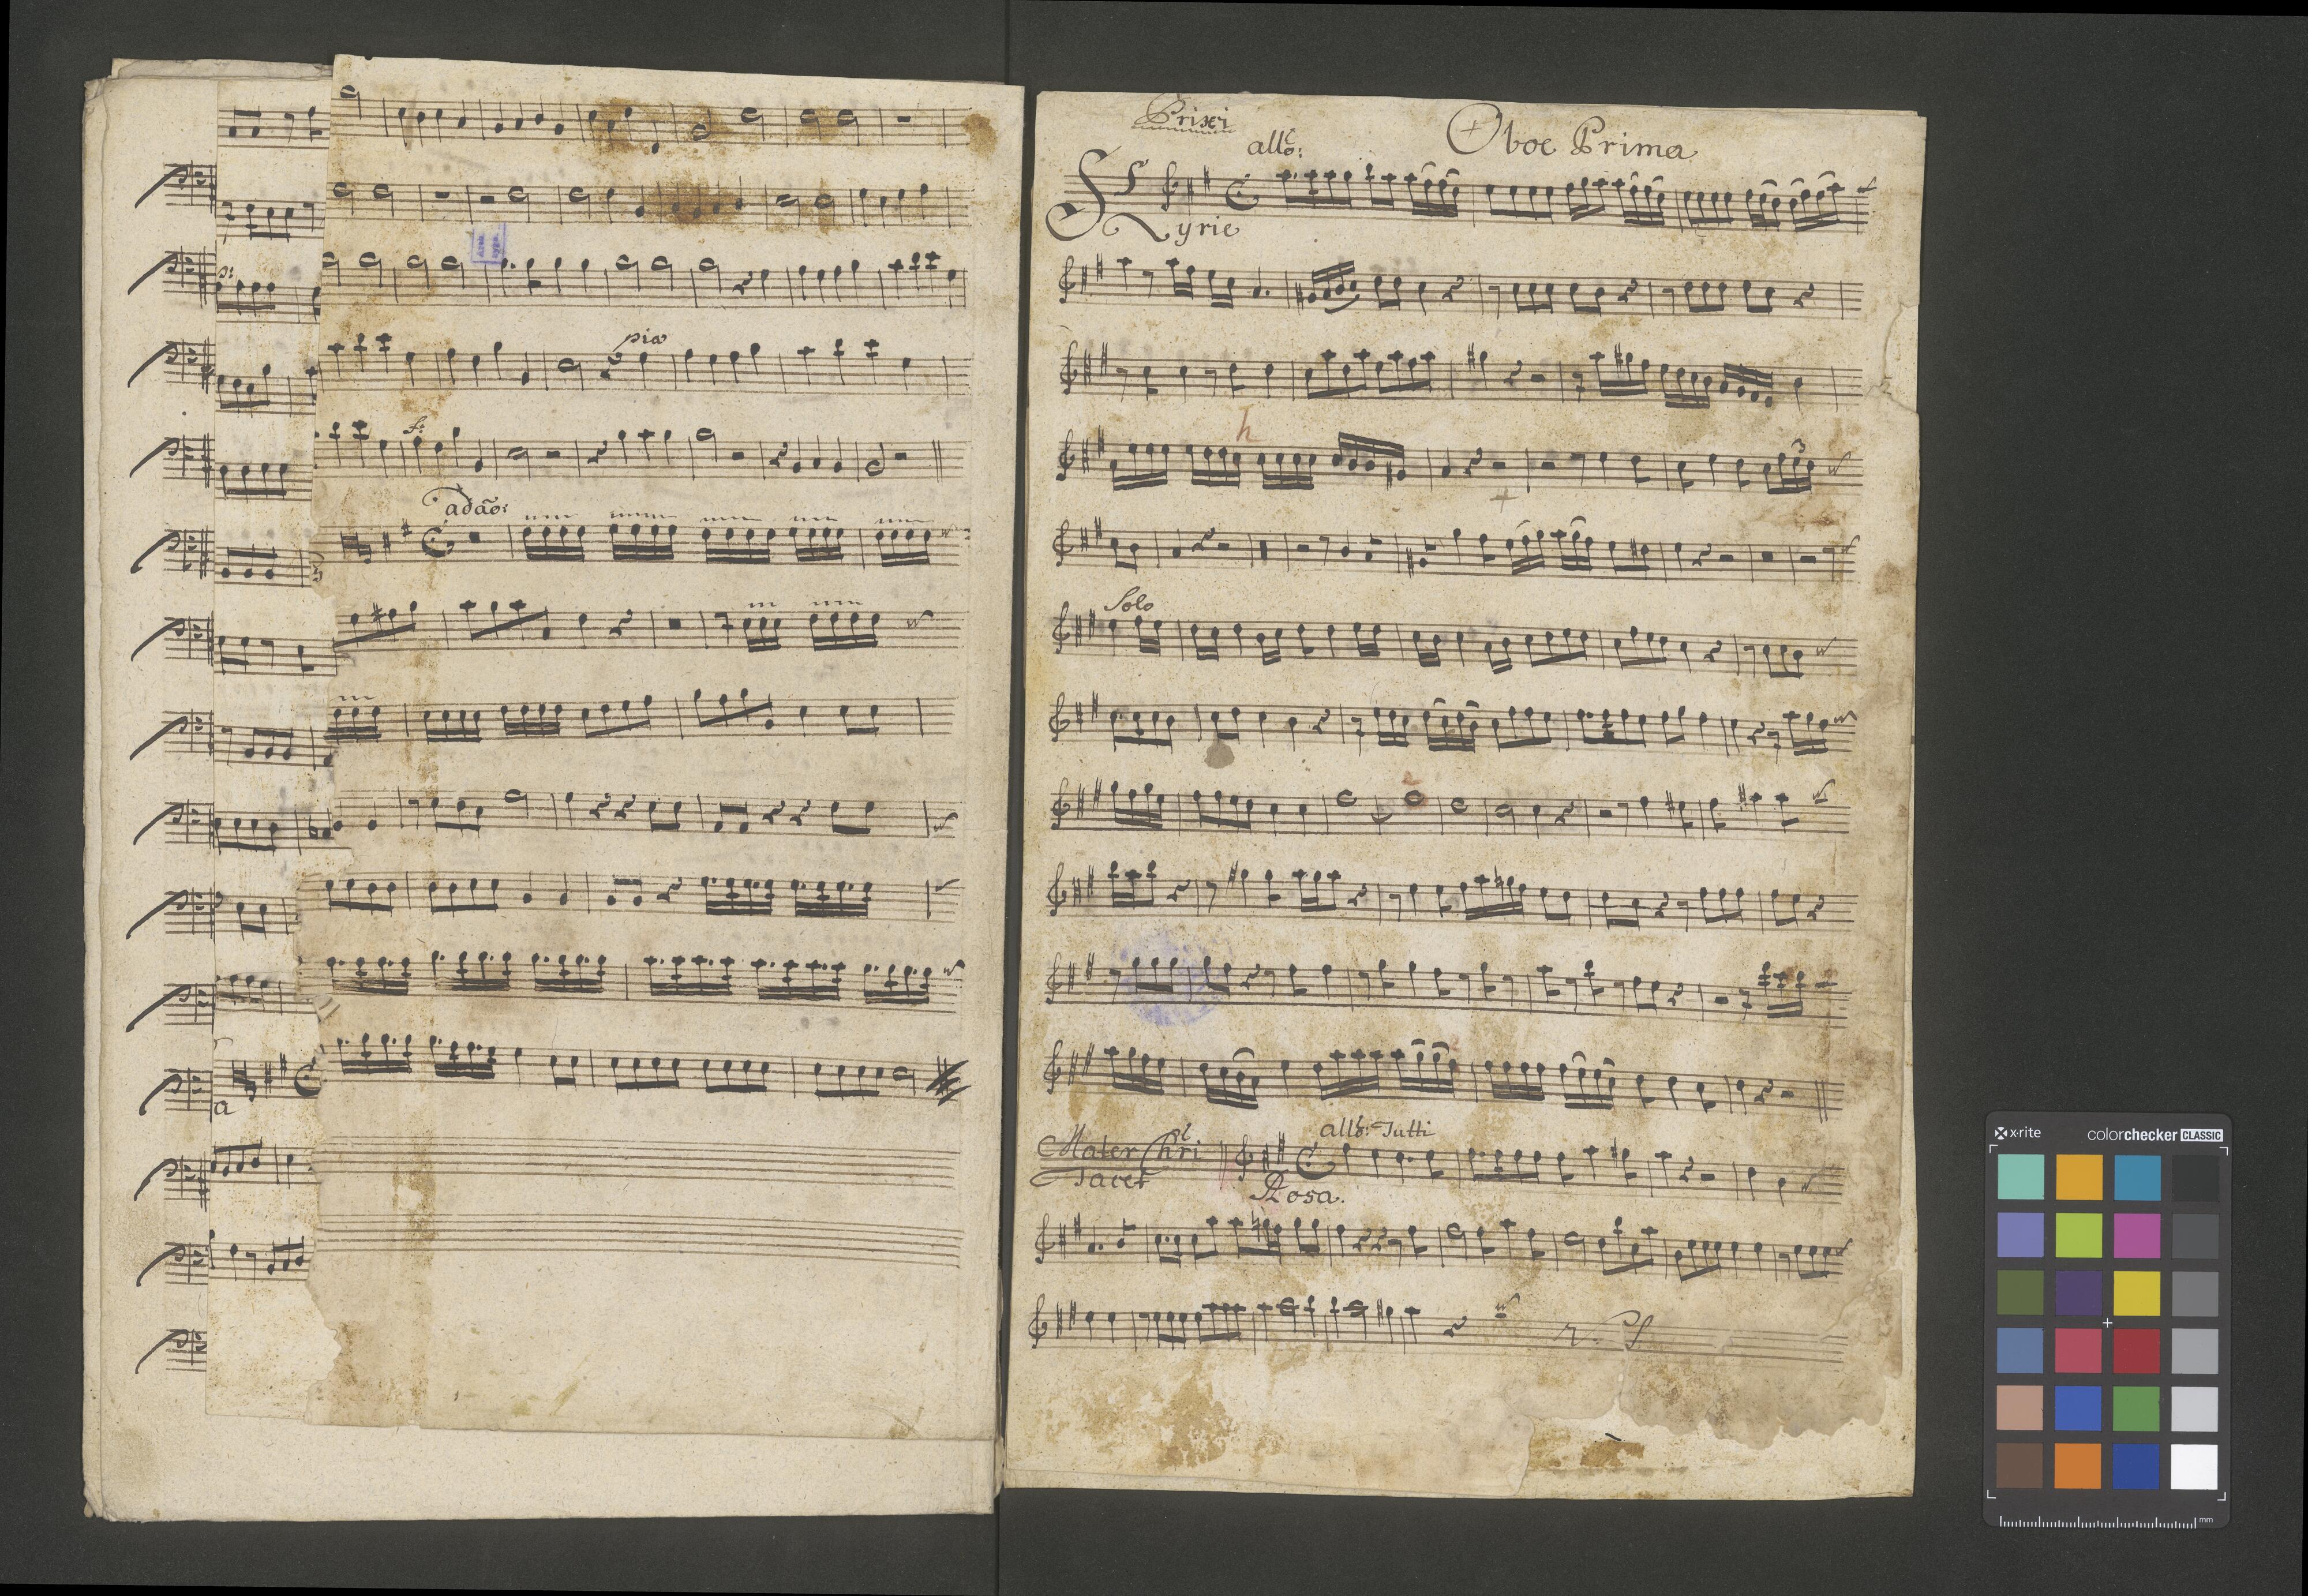 p:
pia
f:
adão:
a
Prixi
allº:
Oboe Prima
Kyrie
h
3
Solo
allº: Tutti
Mater Chri
Tacet
Rosa.
x-rite
colorchecker CLASSIC
mm